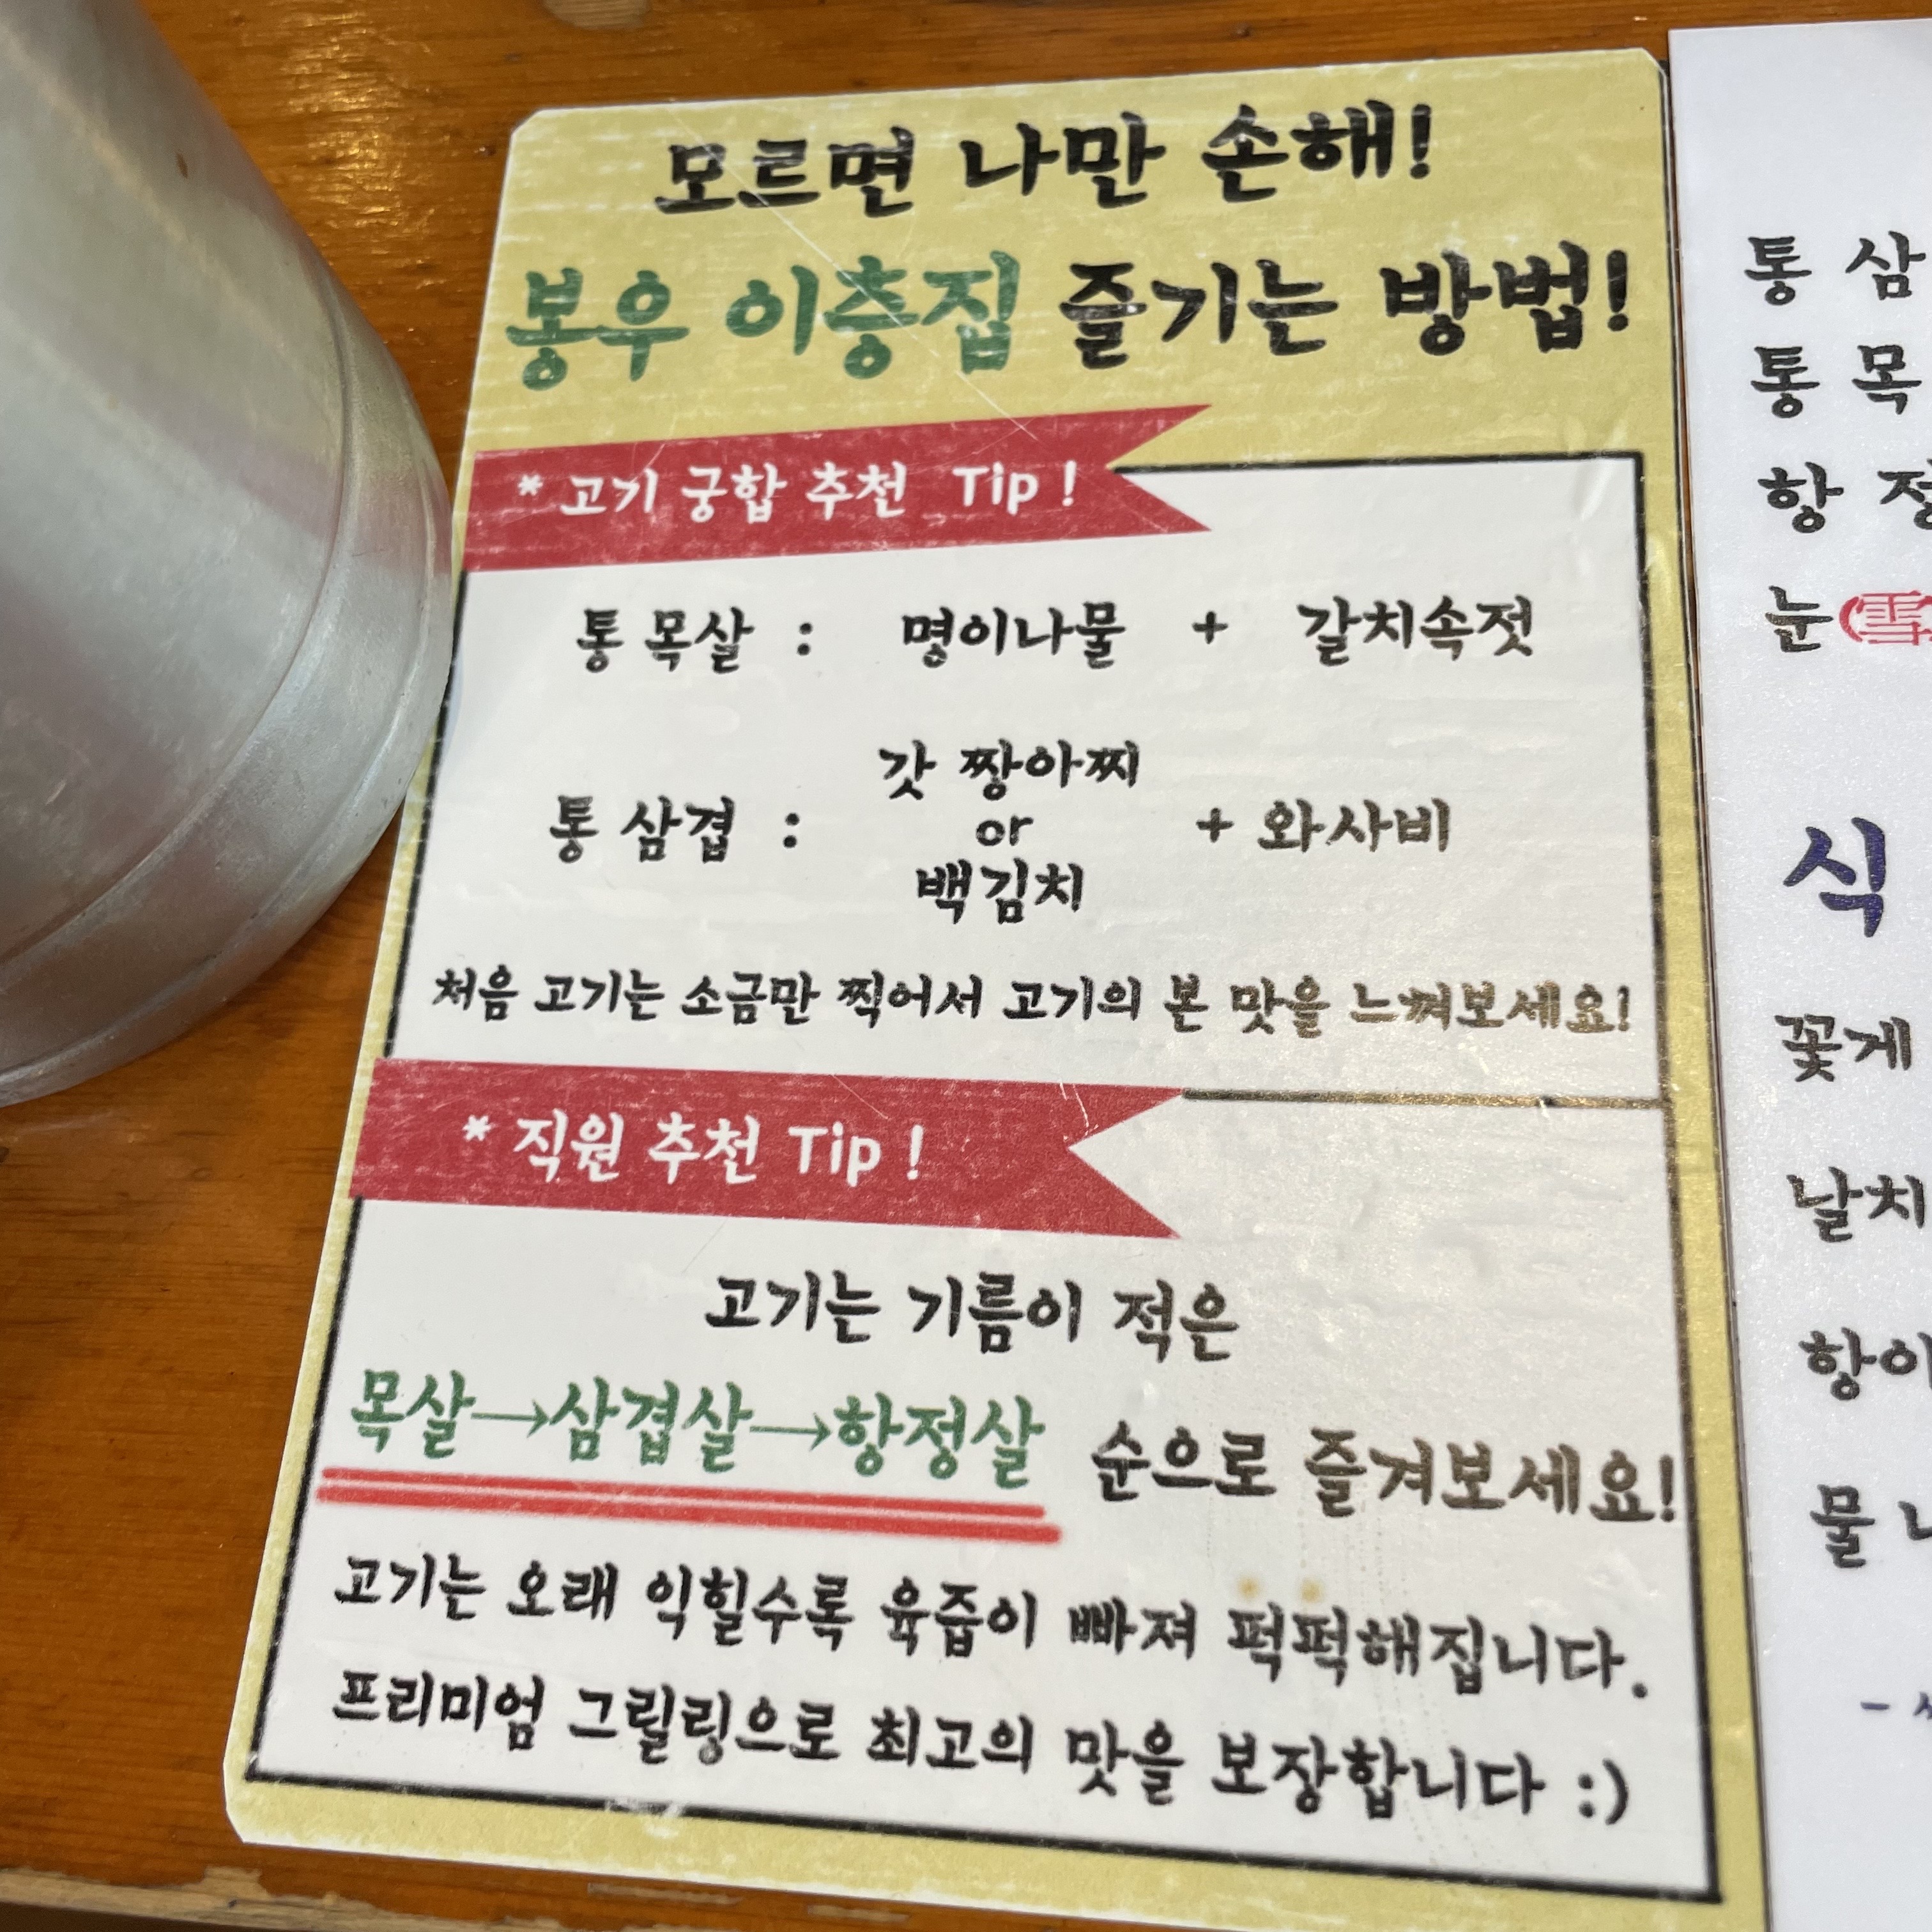 모르면 나만 손해!
봉우 이층집 즐기는 방법!
* 고기 궁합 추천 Tip !
통 목살 : 명이나물 + 갈치속젓
갓 짱아찌
통 삼겹 : or + 와사비
백김치
처음 고기는 소금만 찍어서 고기의 본 맛을 느껴보세요!
* 직원 추천 Tip !
고기는 기름이 적은
목살→삼겹살→항정살 순으로 즐겨보세요!
고기는 오래 익힐수록 육즙이 빠져 퍽퍽해집니다.
프리미엄 그릴링으로 최고의 맛을 보장합니다 :)
통 삼
통 목
항 정
눈
식
꽃게
날치
항아
물